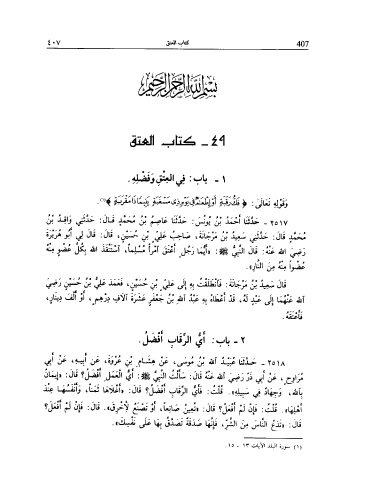 ٤٠٧ كتاب العتق 407
بسم الله الرحمن الرحيم
٤٩ ـ كتاب العتق
١ ـ باب: فِي العِتْقِ وَفَضْلِهِ.
وَقَوْلِهِ تَعَالَى: ﴿ فَكُّ رَقَبَةٍ أَوْ إِطْعَامٌ فِي يَوْمٍ ذِي مَسْغَبَةٍ يَتِيمًا ذَا مَقْرَبَةٍ ﴾(١).
٢٥١٧ ـ حَدَّثَنَا أَحْمَدُ بْنُ يُونُسَ: حَدَّثَنَا عَاصِمُ بْنُ مُحَمَّدٍ قَالَ: حَدَّثَنِي وَاقِدُ بْنُ
مُحَمَّدٍ قَالَ: حَدَّثَنِي سَعِيدُ بْنُ مَرْجَانَةَ، صَاحِبُ عَلِيِّ بْنِ حُسَيْنٍ، قَالَ: قَالَ لِي أَبو هُرَيْرَةَ
رَضِيَ اللهُ عَنْهُ: قَالَ النَّبِيُّ ﷺ: «أَيُّمَا رَجُلٍ أَعْتَقَ امْرَأً مُسْلِماً، اسْتَنْقَذَ اللهُ بِكُلِّ عُضْوٍ مِنْهُ
عُضْواً مِنْهُ مِنَ النَّارِ».
قَالَ سَعِيدُ بْنُ مَرْجَانَةَ: فَانْطَلَقْتُ بِهِ إِلَى عَلِيِّ بْنِ حُسَيْنٍ، فَعَمَدَ عَلِيُّ بْنُ حُسَيْنٍ رَضِيَ
اللهُ عَنْهُمَا إِلَى عَبْدٍ لَهُ، قَدْ أَعْطَاهُ بِهِ عَبْدُ اللهِ بْنُ جَعْفَرٍ عَشَرَةَ آلَافِ دِرْهَمٍ، أَوْ أَلْفَ دِينَارٍ،
فَأَعْتَقَهُ.
٢ ـ باب: أَيُّ الرِّقَابِ أَفْضَلُ.
٢٥١٨ ـ حَدَّثَنَا عُبَيْدُ اللهِ بْنُ مُوسَى، عَنْ هِشَامِ بْنِ عُرْوَةَ، عَنْ أَبِيهِ، عَنْ أَبِي
مُرَاوِحٍ، عَنْ أَبِي ذَرٍّ رَضِيَ اللهُ عَنْهُ قَالَ: سَأَلْتُ النَّبِيَّ ﷺ: أَيُّ الْعَمَلِ أَفْضَلُ؟ قَالَ: «إِيمَانٌ
بِاللهِ، وَجِهَادٌ فِي سَبِيلِهِ». قُلْتُ: فَأَيُّ الرِّقَابِ أَفْضَلُ؟ قَالَ: «أَغْلَاهَا ثَمَناً، وَأَنْفَسُهَا عِنْدَ
أَهْلِهَا». قُلْتُ: فَإِنْ لَمْ أَفْعَلْ؟ قَالَ: «تُعِينُ صَانِعاً، أَوْ تَصْنَعُ لِأَخْرَقَ». قَالَ: فَإِنْ لَمْ أَفْعَلْ؟
قَالَ: «تَدَعُ النَّاسَ مِنَ الشَّرِّ، فَإِنَّهَا صَدَقَةٌ تَصَدَّقُ بِهَا عَلَى نَفْسِكَ».
(١) سورة البلد الآيات ١٣ - ١٥.